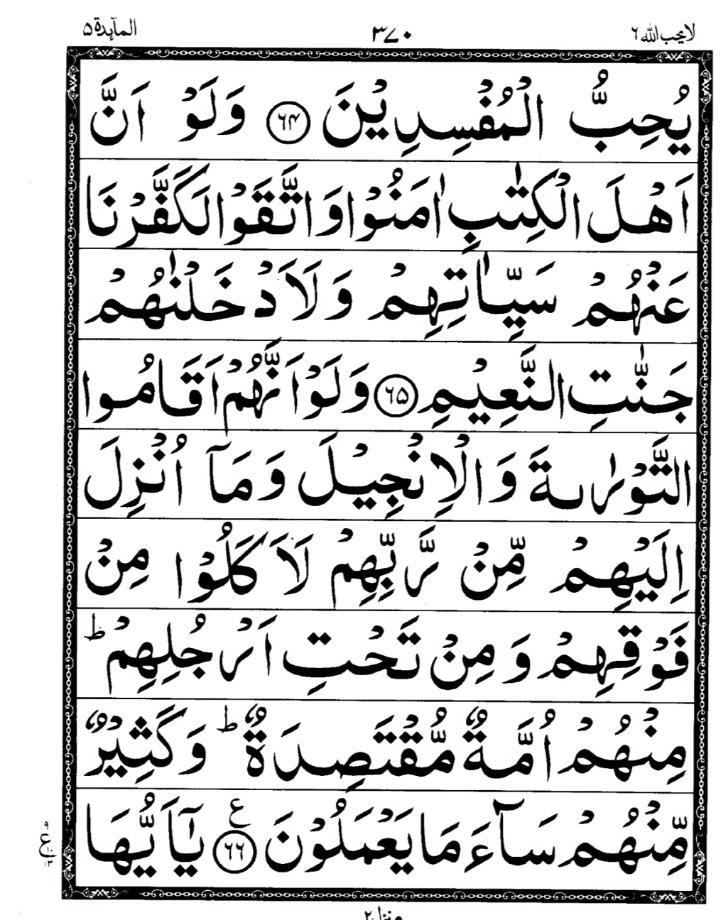 لا يحب الله ٦ ٣٧٠ المآبدة ٥
يُحِبُّ الْمُفْسِدِيْنَ ﴿٦٤﴾ وَلَوْ اَنَّ
اَهْلَ الْكِتٰبِ اٰمَنُوْا وَاتَّقَوْا لَكَفَّرْنَا
عَنْهُمْ سَيِّاٰتِهِمْ وَلَاَدْخَلْنٰهُمْ
جَنّٰتِ النَّعِيْمِ ﴿٦٥﴾ وَلَوْ اَنَّهُمْ اَقَامُوا
التَّوْرٰىةَ وَالْاِنْجِيْلَ وَمَاۤ اُنْزِلَ
اِلَيْهِمْ مِّنْ رَّبِّهِمْ لَاَكَلُوْا مِنْ
فَوْقِهِمْ وَمِنْ تَحْتِ اَرْجُلِهِمْ ؕ
مِنْهُمْ اُمَّةٌ مُّقْتَصِدَةٌ ؕ وَكَثِيْرٌ
مِّنْهُمْ سَآءَ مَا يَعْمَلُوْنَ ﴿٦٦﴾ ع يٰۤاَيُّهَا
منزل ٢